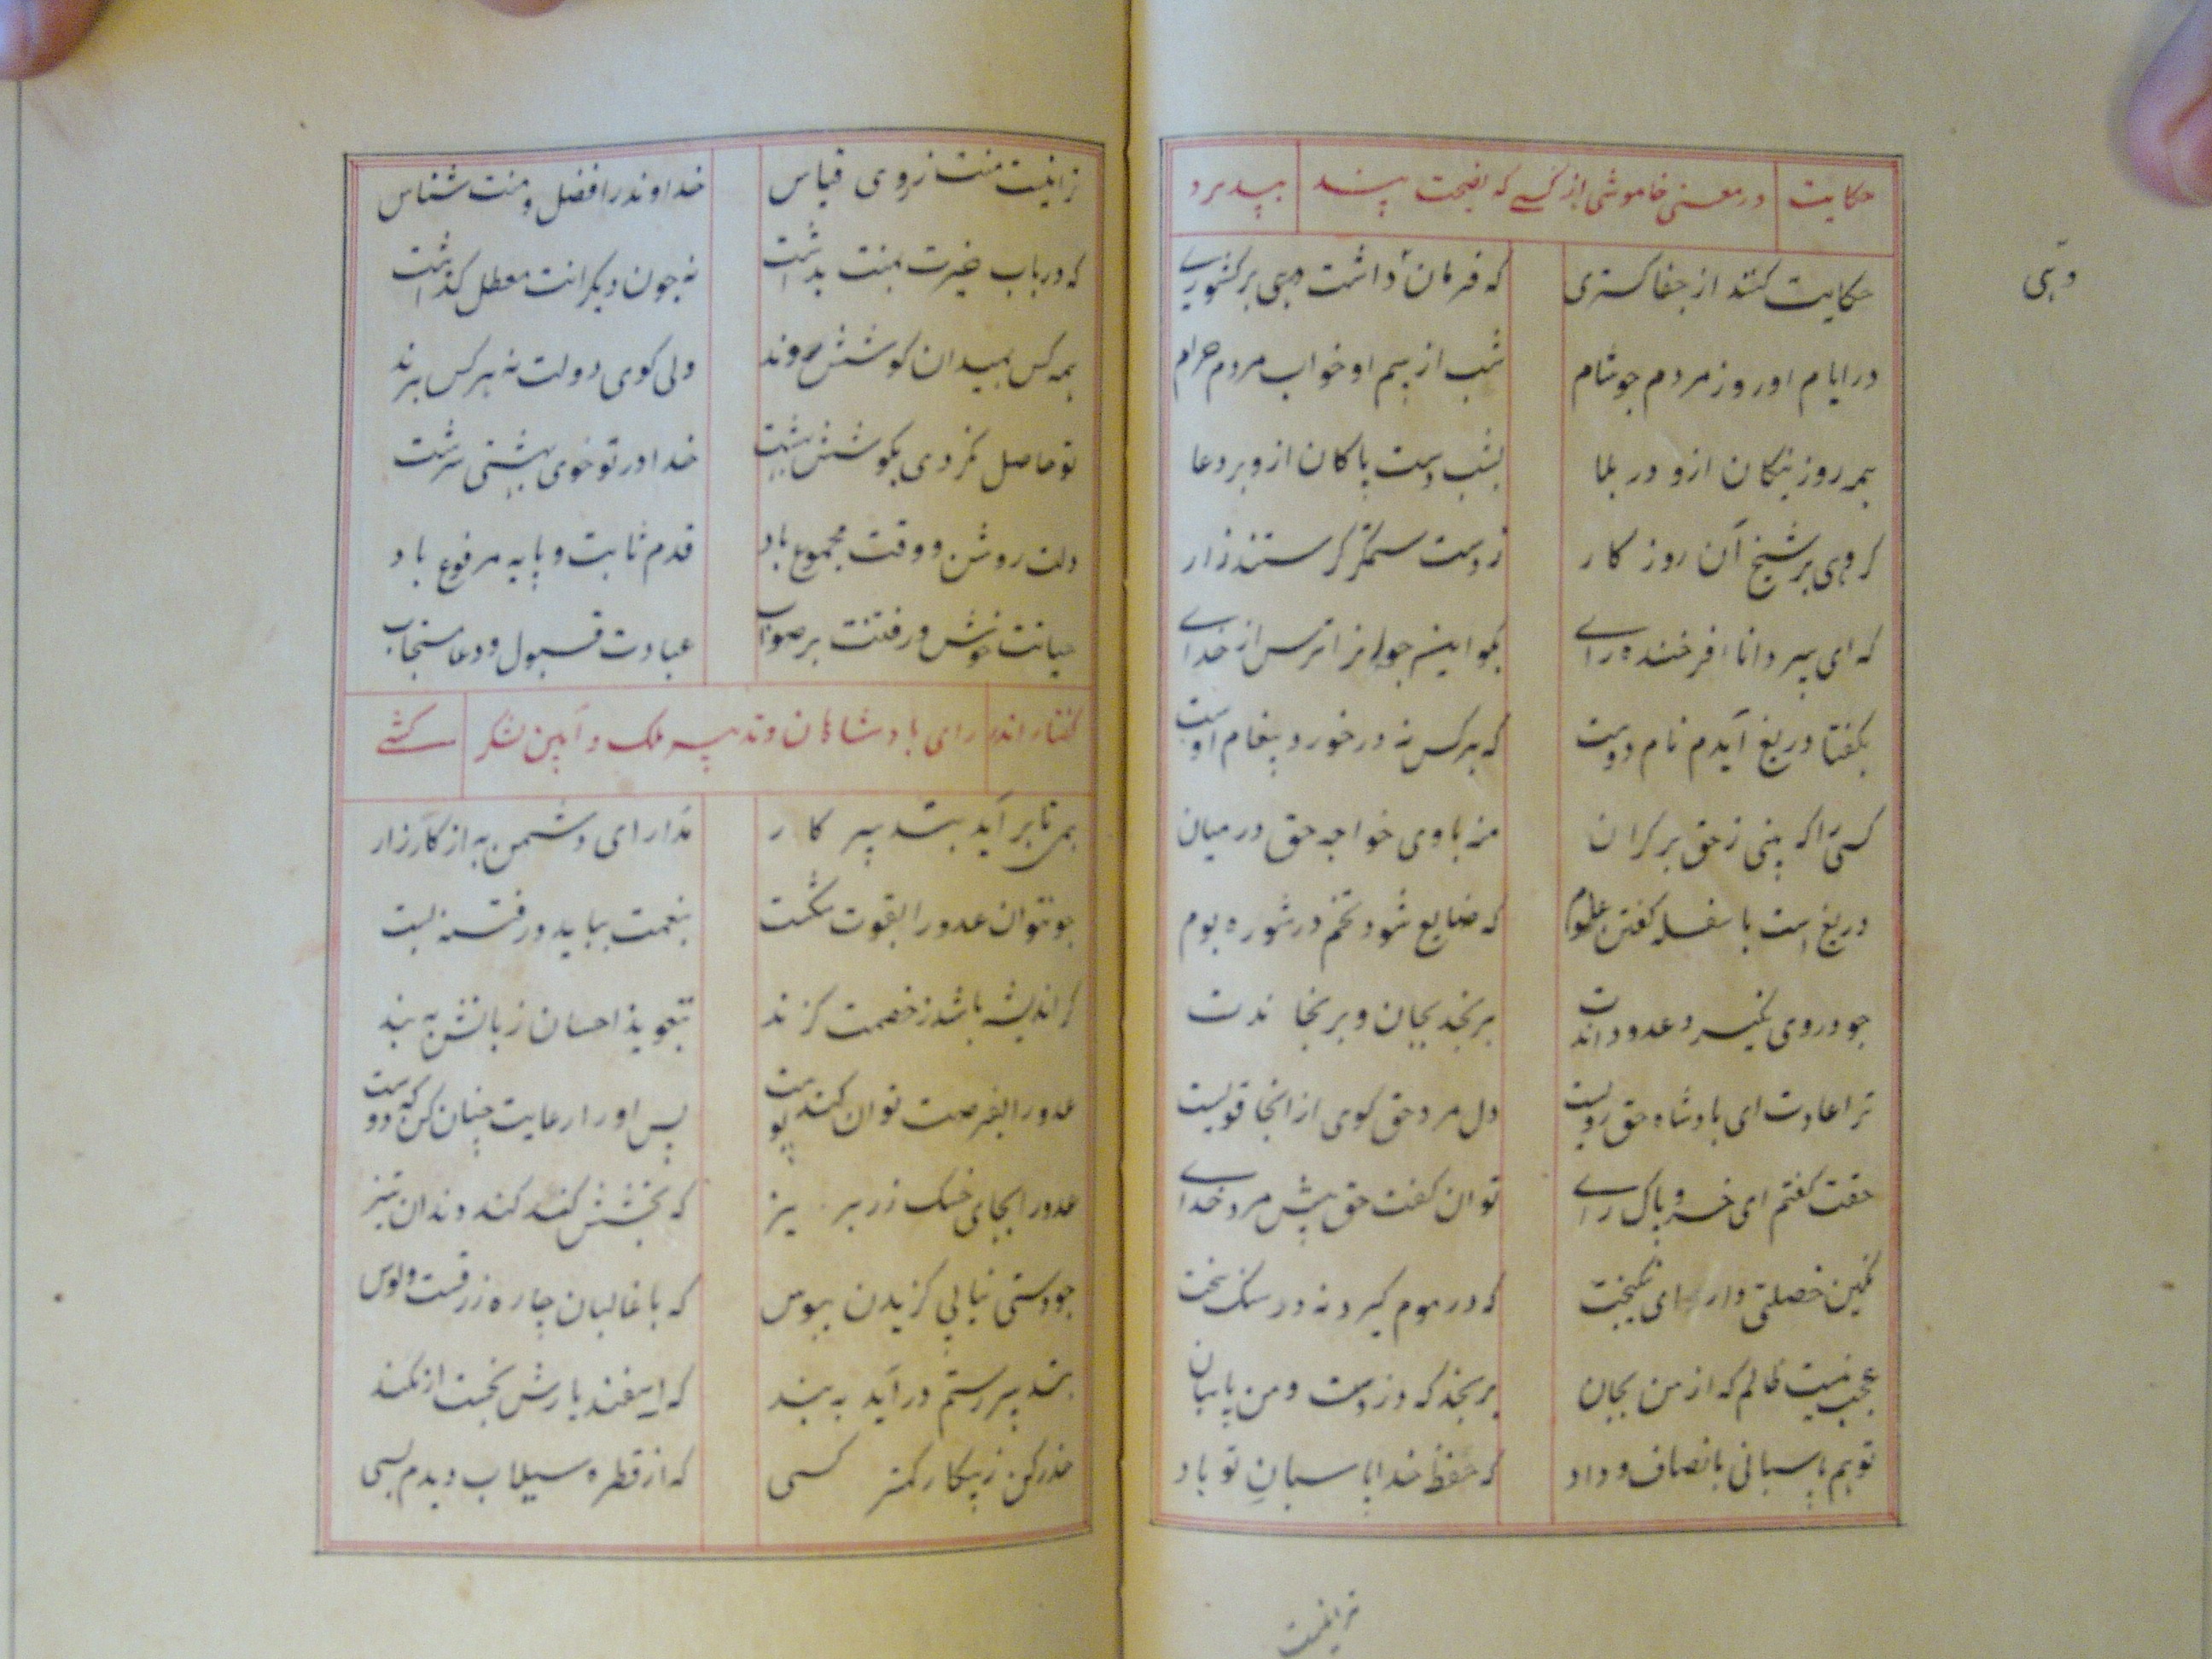 حکایت در معنی خاموشی از کسی که نصیحت پند نپذیرد
دهی
حکایت کنند از جفا کستری که فرمان داشت دهی بر کشوری
در ایام او روز مردم جو شام شب از بیم او خواب مردم حرام
همه روز نیکان ازو در بلا بشب دست پاکان ازو بر دعا
کروهی بر شیخ آن روز کار ز دست ستمکر کرستند زار
که ای پیر دانا افرخنده رای بکو اینم جوانرا بترس از خدای
بکفتا دریغ آیدم نام دوست که هر کس نه در خورد پیغام اوست
کسی را که بینی ز حق بر کران منه با وی خواجه حق در میان
دریغ است با سفله کفتن علوم که ضایع شود تخم در شوره بوم
جو در وی نکیرد عدو داندت برنجد بجان و برنجا ندت
ترا عادت ای بادشاه حق رویست دل مرد حق کوی از انجا قویست
حقت کفتم ای خسرو پاک رای توان کفت حق پیش مرد خدای
نکین خصلتی دارد ای نیکبخت که در موم کیرد نه در سنک سخت
عجب نیست ظالم که از من بجان برنجد که دزدست و من پاسبان
تو هم پاسبانی بانصاف و داد که حفظ خدا پاسبانِ تو باد
ترا نیست
ترا نیست منت ز روی قیاس خداوند را فضل و منت شناس
که در باب خیرت بمنت بداشت نه جون دیکرانت معطل کذاشت
همه کس بمیدان کوشش روند ولی کوی دولت نه هر کس برند
تو حاصل نکردی بکوشش بهشت خدا در تو خوی بهشتی سرشت
دلت روشن و وقت مجموع باد قدم ثابت و پایه مرفوع باد
حیاتت خوش و رفتنت بر صواب عبادت قبول و دعا مستجاب
کفتار اندر رای بادشاهان و تدبیر ملک و آیین لشکر کشی
همی تا بر آید بتدبیر کار مدارای دشمن به از کارزار
جو نتوان عدو را بقوت شکست بنعمت بباید در فتنه بست
کر اندیشه باشد ز خصمت کزند بتعویذ احسان زبانش به بند
عدو را بفرصت توان کند پوست پس او را رعایت چنان کن که دوست
عدو را بجای خسک زر بریز که بخشش کند کند دندان تیز
جو دستی نیابی کزیدن ببوس که با غالبان چاره زرقست و لوس
بتدبیر رستم در آید به بند که اسفندیارش نجست از کمند
حذر کن ز پیکار کمتر کسی که از قطره سیلاب دیدم بسی